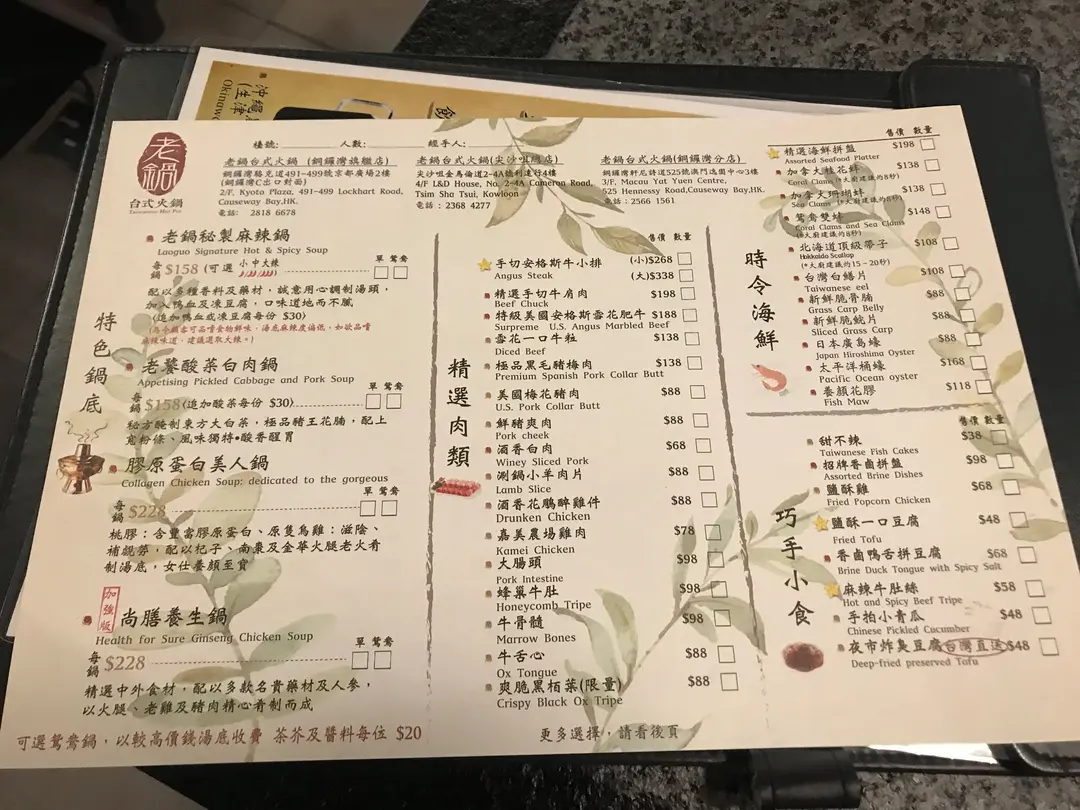 沖繩
生津
Okinaw
老鍋
台式火鍋
Taiwanese Hot Pot
檯號: 人數: 經手人:
老鍋台式火鍋 (銅鑼灣旗艦店)
銅鑼灣駱克道491-499號京都廣場2樓
(銅鑼灣C出口對面)
2/F, Kyoto Plaza, 491-499 Lockhart Road,
Causeway Bay,HK.
電話: 2818 6678
老鍋台式火鍋(尖沙咀總店)
尖沙咀金馬倫道2-4A號利達行4樓
4/F L&D House, No. 2-4A Cameron Road,
Tsim Sha Tsui, Kowloon
電話：2368 4277
老鍋台式火鍋(銅鑼灣分店)
銅鑼灣軒尼詩道525號澳門逸園中心3樓
3/F, Macau Yat Yuen Centre,
525 Hennessy Road,Causeway Bay,HK.
電話：2566 1561
特色鍋底
老鍋秘製麻辣鍋
Laoguo Signature Hot & Spicy Soup
單 鴛鴦
每鍋 $158 (可選 小中大辣
配以多種香料及藥材，誠意用心調制湯頭，
加入鴨血及凍豆腐，口味道地而不膩
(追加鴨血或凍豆腐每份 $30)
(為令顧客可品嚐食物鮮味，湯底麻辣度偏低，如欲品嚐
麻辣味道，建議選取大辣。)
老饕酸菜白肉鍋
Appetising Pickled Cabbage and Pork Soup
單 鴛鴦
每鍋 $158(追加酸菜每份 $30)
秘方醃制東方大白菜，極品豬王花腩，配上
寬粉條、風味獨特•酸香醒胃
膠原蛋白美人鍋
Collagen Chicken Soup: dedicated to the gorgeous
單 鴛鴦
每鍋 $228
桃膠：含豐富膠原蛋白、原隻烏雞：滋陰、
補靚旁，配以杞子、南棗及金華火腿老火肴
制湯底，女仕養顏至寶
加強版
尚膳養生鍋
Health for Sure Ginseng Chicken Soup
單 鴛鴦
每鍋 $228
精選中外食材，配以多款名貴藥材及人參，
以火腿、老雞及豬肉精心肴制而成
可選鴛鴦鍋，以較高價錢湯底收費 茶芥及醬料每位 $20
精選肉類
售價 數量
手切安格斯牛小排 (小)$268
Angus Steak (大)$338
精選手切牛肩肉 $198
Beef Chuck
特級美國安格斯雪花肥牛 $188
Surpreme U.S. Angus Marbled Beef
雪花一口牛粒 $138
Diced Beef
極品黑毛豬梅肉 $138
Premium Spanish Pork Collar Butt
美國梅花豬肉 $88
U.S. Pork Collar Butt
鮮豬爽肉 $88
Pork cheek
酒香白肉 $68
Winey Sliced Pork
涮鍋小羊肉片 $88
Lamb Slice
酒香花鵰醉雞件 $88
Drunken Chicken
嘉美農場雞肉 $78
Kamei Chicken
大腸頭 $98
Pork Intestine
蜂巢牛肚 $98
Honeycomb Tripe
牛骨髓 $98
Marrow Bones
牛舌心 $88
Ox Tongue
爽脆黑栢葉(限量) $88
Crispy Black Ox Tripe
更多選擇，請看後頁
時令海鮮
售價 數量
精選海鮮拼盤 $198
Assorted Seafood Platter
加拿大桂花蚌 $138
Coral Clams (*大廚建議約8秒)
加拿大珊瑚蚌 $138
Sea Clams (*大廚建議約8秒)
鴛鴦雙蚌 $148
Coral Clams and Sea Clams
(*大廚建議約8秒)
北海道頂級帶子 $108
Hokkaido Scallop
(*大廚建議約15－20秒)
台灣白鱔片 $108
Taiwanese eel
新鮮脆骨腩 $88
Grass Carp Belly
新鮮脆鯇片 $88
Sliced Grass Carp
日本廣島蠔 $88
Japan Hiroshima Oyster
太平洋桶蠔 $168
Pacific Ocean oyster
養顏花膠 $118
Fish Maw
巧手小食
售價 數量
甜不辣 $38
Taiwanese Fish Cakes
招牌香鹵拼盤 $98
Assorted Brine Dishes
鹽酥雞 $68
Fried Popcorn Chicken
鹽酥一口豆腐 $48
Fried Tofu
香鹵鴨舌拼豆腐 $68
Brine Duck Tongue with Spicy Salt
麻辣牛肚絲 $58
Hot and Spicy Beef Tripe
手拍小青瓜 $48
Chinese Pickled Cucumber
夜市炸臭豆腐 台灣直送 $48
Deep-fried preserved Tafu